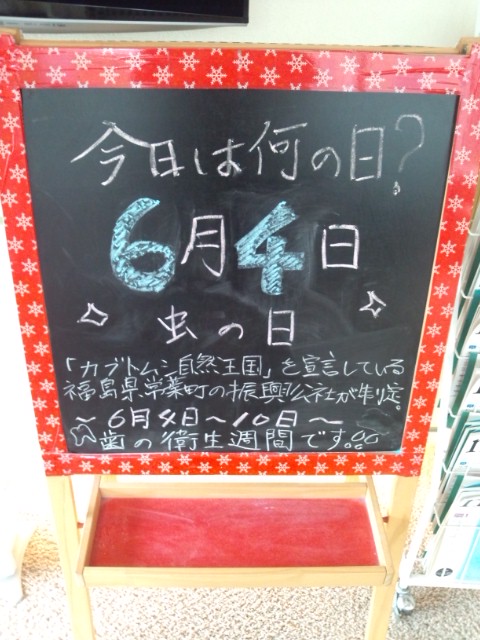 今日は何の日?
6月4日
虫の日
「カブトムシ自然王国」を宣言している
福島県常葉町の振興公社が制定。
～6月4日～10日～
歯の衛生週間です。